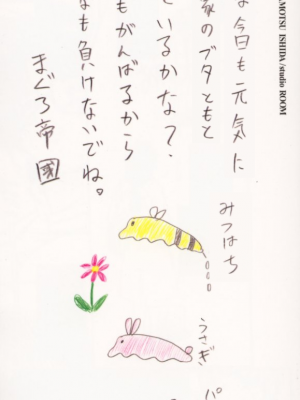 今日も元気に
家のブタともと
ているかな?
もがんばるから
なも負けないでね。
まぐろ帝國
みつはち
うさぎ
パ
AMOTSU ISHIDA/studio ROOM